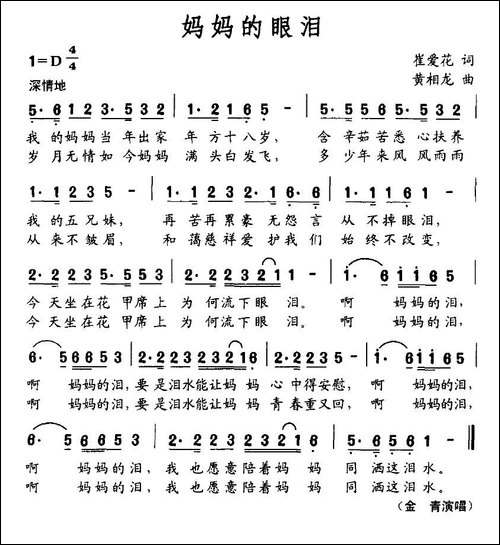 妈妈的眼泪
1=D 4/4
崔爱花 词
深情地
黄相龙 曲
5· 6 1 2 3· 5 3 2 | 1· 2 1 6 5 - | 5· 6 1 2 3· 5 3 2 |
我 的妈妈当 年出家 年 方十八岁, 含 辛茹苦悉 心扶养
岁 月无情如 今妈妈 满 头白发飞, 多 少年来风 风雨雨
1· 1 2 3 5 - | 1· 1 2 3 2 1 6· 6 | 1· 1 5 6 1 - |
我 的五兄妹, 再 苦再累豪 无怨言 从 不掉眼泪,
从 来不皱眉, 和 蔼慈祥爱 护我们 始 终不改变,
2· 2 2 3 5 2 3 5 | 2· 2 2 2 3 2 1 - | 1· 6 6 1 1 6 5 |
今 天坐在花 甲席上 为 何流下眼 泪。 啊 妈妈的泪,
今 天坐在花 甲席上 为 何流下眼 泪。 啊 妈妈的泪,
6· 5 6 6 5 3 | 2· 2 2 3 5 2 3 5 | 2· 2 2 3 2 1 6 | 1· 6 6 1 1 6 5 |
啊 妈妈的泪, 要 是泪水能让妈 妈 心 中得安慰, 啊 妈妈的泪,
啊 妈妈的泪, 要 是泪水能让妈 妈 青 春重又回, 啊 妈妈的泪,
6· 5 6 6 5 3 | 2· 2 2 3 5 2 3 5 | 5· 6 5 6 1 - ‖
啊 妈妈的泪, 我 也愿意陪着妈 妈 同 洒这泪水。
啊 妈妈的泪, 我 也愿意陪着妈 妈 同 洒这泪水。
(金 青演唱)